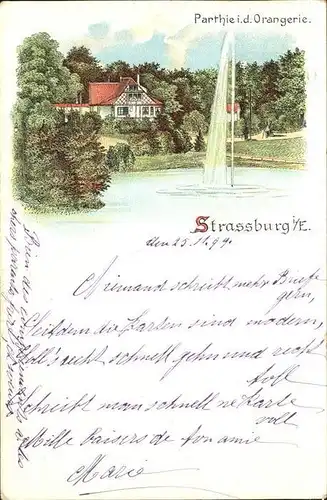 Parthie i. d. Orangerie.
Strassburg i/E.
den 25.11.99.
Niemand schreibt mehr Briefe
gern,
Seitdem die Karten sind modern,
Soll's recht schnell gehn und recht
toll
Schreibt man schnell ne Karte
voll
Mille baisers de ton amie
Marie
Bien des